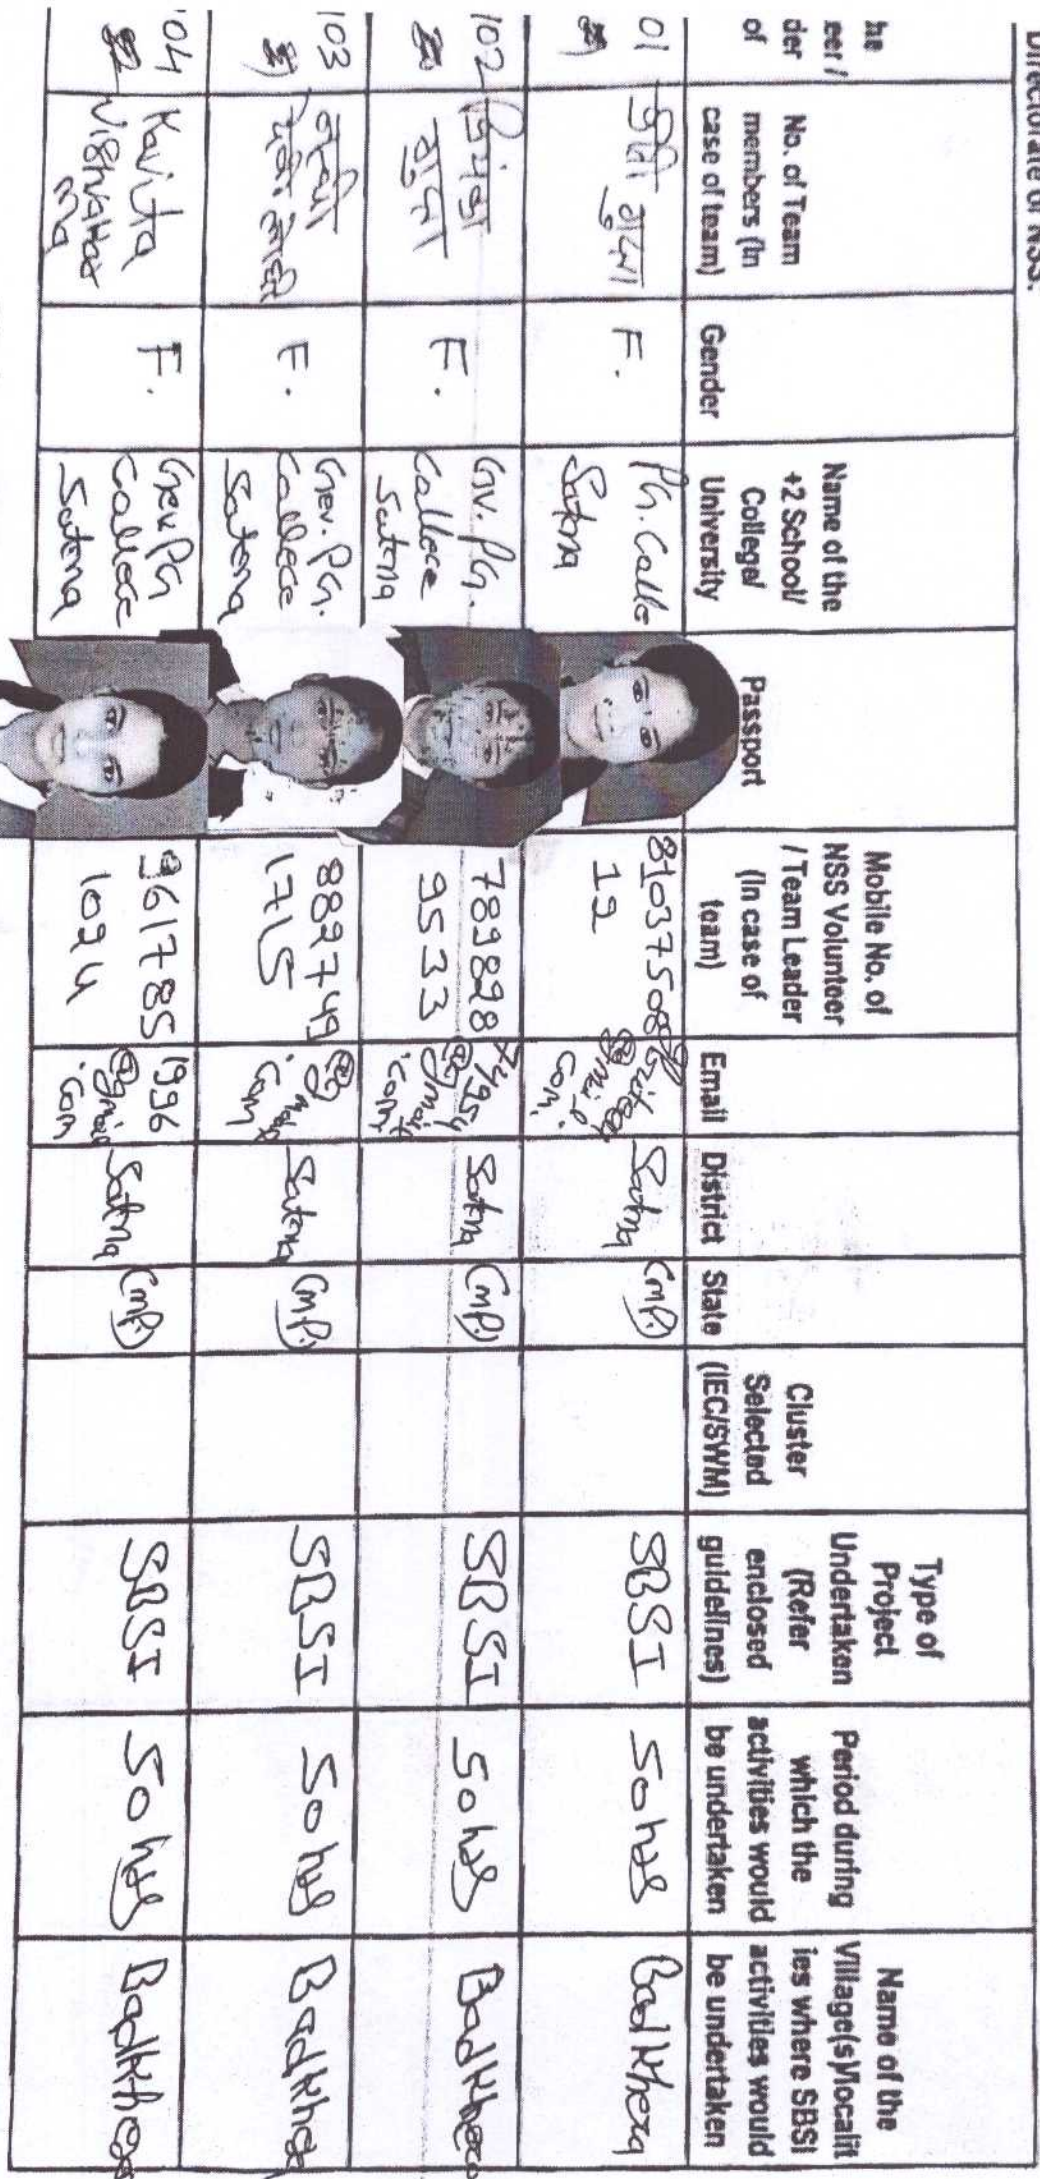 Directorate of NSS.
he
eer /
der
of
No. of Team
members (In
case of team)
Gender
Name of the
+2 School/
College/
University
Passport
Mobile No. of
NSS Volunteer
/ Team Leader
(In case of
team)
Email
District
State
Cluster
Selected
(IEC/SWM)
Type of
Project
Undertaken
(Refer
enclosed
guidelines)
Period during
which the
activities would
be undertaken
Name of the
Village(s)/localit
ies where SBSI
activities would
be undertaken
01
गुप्ता
F.
PG. Colle
Satna
81037508
12
@gmail
com.
Satna
(MP.)
SBSI
50 hrs
Badkhera
102
प्रियंका
गुप्ता
F.
Gv. PG.
Collece
Satna
789828
9533
74954
@gmail
.com
Satna
(MP.)
SBSI
50 hrs
Badkhera
103
F.
Gev. PG.
Collece
Satna
8827749
1715
@g
mail
.com
Satna
(MP.)
SBSI
50 hrs
Badkhera
104
Kavita
Vishwakar
ma
F.
Gev PG
Collece
Satna
9617785
1024
1996
@gmail
.com
Satna
(MP.)
SBSI
50 hrs
Badkhera